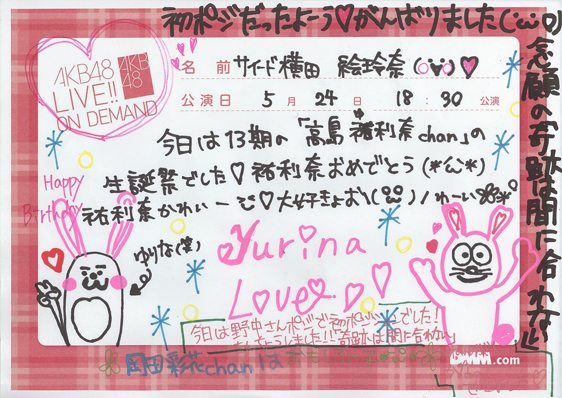 初ポジだったよーう♡がんばりました
念願の奇跡は間に合わない
AKB48
LIVE!!
ON DEMAND
AKB
48
名 前 サイード横田 絵玲奈
公演日 5月24日 18:30 公演
今日は13期の「高島祐利奈chan」の
生誕祭でした♡祐利奈おめでとう(*´ω`*)
祐利奈かわいー♡大好きよお\( )/わーい
Happy
Birthday
ゆりな(笑)
Yurina
Love
今日は野中さんポジで初ポジションでした!
岡田彩花chanは
DMM.com